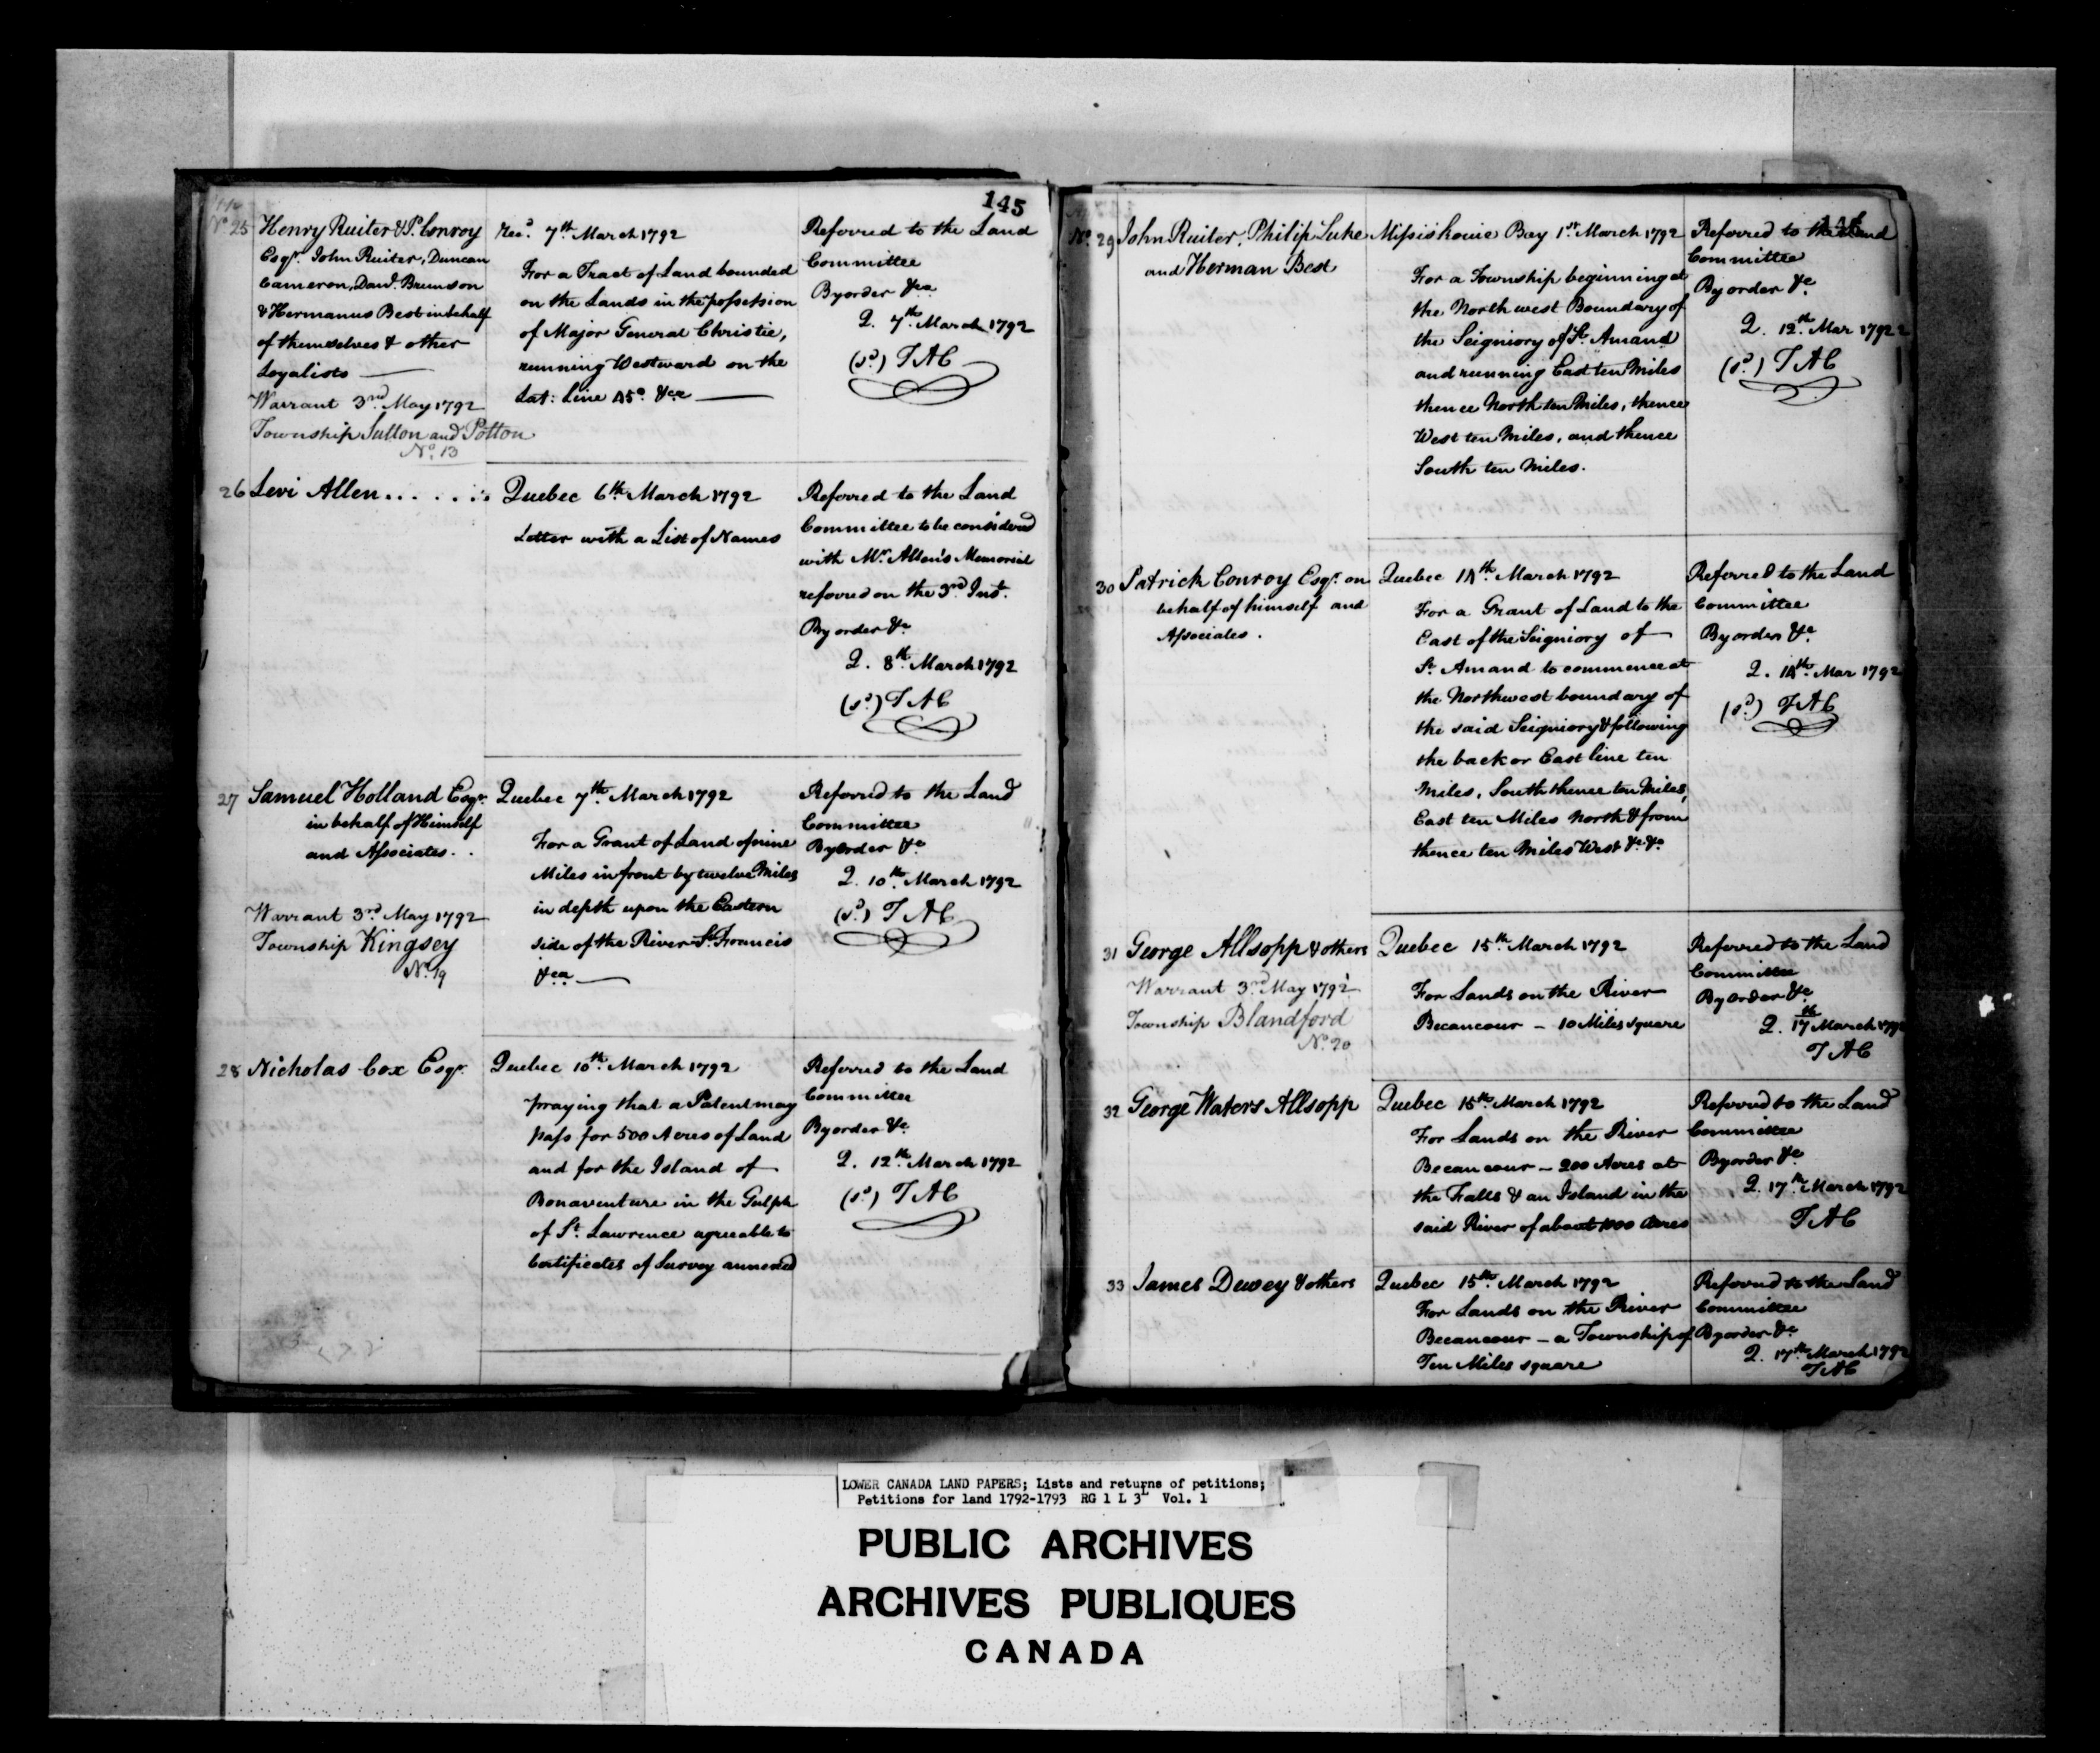 145
No. 25
Henry Ruiter & P. Conroy
Esqr. John Ruiter, Duncan
Cameron, Davd. Brunson
& Hermanus Best in behalf
of themselves & other
Loyalists
Warrant 3rd. May 1792
Township Sutton and Potton
No. 13
Recd. 7th March 1792
For a Tract of Land bounded
on the Lands in the possession
of Major General Christie,
running Westward on the
Lat: Line 45° &ca
Referred to the Land
Committee
By order &ca
Q. 7th March 1792
(sd.) TAC
26 Levi Allen
Quebec 6th March 1792
Letter with a List of Names
Referred to the Land
Committee to be considered
with Mr. Allen's Memorial
referred on the 3rd. Inst.
By order &c
Q. 8th. March 1792
(sd.) TAC
27 Samuel Holland Esqr.
in behalf of Himself
and Associates.
Warrant 3rd May 1792
Township Kingsey
No. 19
Quebec 7th. March 1792
For a Grant of Land of nine
Miles in front by twelve Miles
in depth upon the Eastern
side of the River St. Francis
&ca
Referred to the Land
Committee
By Order &c
Q. 10th. March 1792
(sd.) TAC
28 Nicholas Cox Esqr.
Quebec 10th. March 1792
praying that a Patent may
pass for 500 Acres of Land
and for the Island of
Bonaventure in the Gulph
of St. Lawrence agreeable to
Certificates of Survey annexed
Referred to the Land
Committee
By order &c
Q. 12th March 1792
(sd.) TAC
No. 29 John Ruiter, Philip Luke
and Herman Best
Missiskouie Bay 1st March 1792
For a Township beginning at
the North west Boundary of
the Seigniory of St. Amand
and running East ten Miles
thence North ten Miles, thence
West ten Miles, and thence
South ten Miles.
Referred to the Land
Committee
By order &c
Q. 12th. Mar 1792
(sd.) TAC
30 Patrick Conroy Esqr. on
behalf of himself and
Associates.
Quebec 14th. March 1792
For a Grant of Land to the
East of the Seigniory of
St. Amand to commence at
the Northwest boundary of
the said Seigniory & following
the back or East line ten
Miles, South thence ten Miles,
East ten Miles North & from
thence ten Miles West &c &c
Referred to the Land
Committee
By order &c
Q. 14th. Mar 1792
(sd.) TAC
31 George Allsopp & others
Warrant 3rd May 1792
Township Blandford
No. 20
Quebec 15th March 1792
For Lands on the River
Becancour – 10 Miles square
Referred to the Land
Committee
By Order &c
Q. 17th March 1792
TAC
32 George Waters Allsopp
Quebec 15th. March 1792
For Lands on the River
Becancour – 200 Acres at
the Falls & an Island in the
said River of about 1000 Acres
Referred to the Land
Committee
By order &c
Q. 17th. March 1792
TAC
33 James Dewey & others
Quebec 15th. March 1792
For Lands on the River
Becancour – a Township of
Ten Miles square
Referred to the Land
Committee
By order &c
Q. 17th. March 1792
TAC
LOWER CANADA LAND PAPERS; Lists and returns of petitions;
Petitions for land 1792-1793 RG 1 L 3L Vol. 1
PUBLIC ARCHIVES
ARCHIVES PUBLIQUES
CANADA